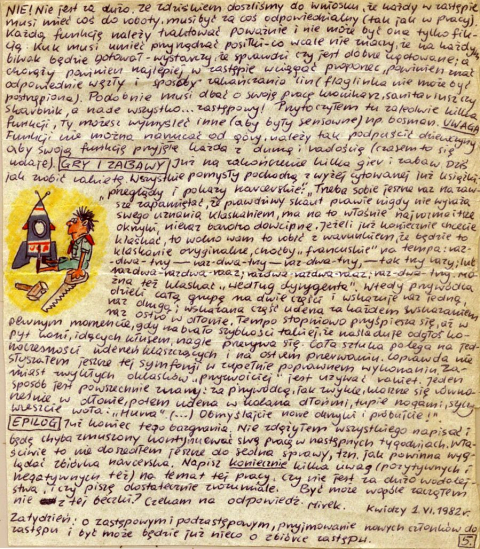 NIE! Nie jest za dużo. Ze Zdziskiem doszliśmy do wniosku, że każdy w zastępie
musi mieć coś do roboty, musi być za coś odpowiedzialny (tak jak w pracy).
Każdą funkcją należy traktować poważnie i nie może być ona tylko fik-
cją. Kuk musi umieć przyrządzać posiłki - co wcale nie znaczy, że na każdym
biwak będzie gotował - wystarczy, że sprawdzi czy jest dobrze ugotowane; a
chorąży powinien najlepiej w zastępie wciągać proporzec, powinien znać
odpowiednie węzły i sposoby umacniania lin (flaglinka nie może być
postrzępiona). Podobnie musi dbać o swoją pracę kronikarz, sanitariusz czy
skarbnik, a nade wszystko... zastępowy! Przytoczyłem tu zaledwie kilka
funkcji, Ty możesz wymyśleć inne (aby były sensowne) np. bosman. UWAGA
Funkcji nie można narzucać od góry, należy tak podpuścić dziewczyny
aby swoją funkcję przyjęła każda z dumą i radością (czasem to się
udaje). GRY I ZABAWY Już na zakończenie kilka gier i zabaw oraz
jak zrobić rakietę. Wszystkie pomysły pochodzą z wyżej cytowanej już książki
„przeglądy i pokazy harcerskie": „Trzeba sobie jeszcze raz na zaw-
sze zapamiętać, że prawdziwy skaut prawie nigdy nie wyraża
swego uznania klaskaniem, ma na to właśnie najrozmaitsze
okrzyki, nieraz bardzo dowcipne. Jeżeli już koniecznie chcecie
klaskać, to wolno wam to robić z warunkiem, że będzie to
klaskanie oryginalne, choćby „francuskie" w tempie: raz-
dwa-trzy — raz-dwa-trzy — raz-dwa-trzy, — tak trzy razy; lub
raz dwa-raz dwa-raaz; raz dwa-raz dwa-raaz; raz-dwa-trzy. Mo-
żna też klaskać „według dyrygenta". Wtedy przywódca
dzieli całą grupę na dwie części i wskazuje raz jedną,
raz drugą; wskazana część udena za każdem wskazaniem
raz ostro w dłonie. Tempo stopniowo przyśpiesza się, aż w
pewnym momencie, gdy nabrało szybkości takiej, że naśladuje odgłos ko-
pyt koni, idących kłusem, nagle przerywa się. Cała sztuka polega na jed-
noczesności uderzeń klaszczących i na ostrem przerwaniu. Coprawda nie
słyszałem jeszcze tej symfonji w zupełnie poprawnem wykonaniu. Za-
miast zwykłych oklasków „przyzwoiciej" jest używać rakiet. Jeden
sposób jest powszechnie znany: za przywódcą, jak zwykle, można się równo-
cześnie w dłonie, potem udena w kolana dłońmi, tupie nogami, syczy
wreszcie woła: „Hurra" (...) Obmyślajcie nowe okrzyki i próbujcie!"
EPILOG Już koniec tego bazgrania. Nie zdążyłem wszystkiego napisać i
będę chyba zmuszony kontynuować swą pracę w następnych tygodniach. Wła-
ściwie to nie doszedłem jeszcze do sedna sprawy, tzn. jak powinna wyg-
lądać zbiórka harcerska. Napisz koniecznie kilka uwag (pozytywnych i
negatywnych też) na temat tej pracy. Czy nie jest za dużo wodolej-
stwa, i czy piszę dostatecznie zrozumiale. Być może wogóle zacząłem
nie z tej beczki? Czekam na odpowiedź. Mirek. Kwidzy 1.VI.1982r.
Za tydzień: o zastępowym i podzastępowym, przyjmowanie nowych członków do
zastępu i być może będzie już nieco o zbiórce zastępu. 5.